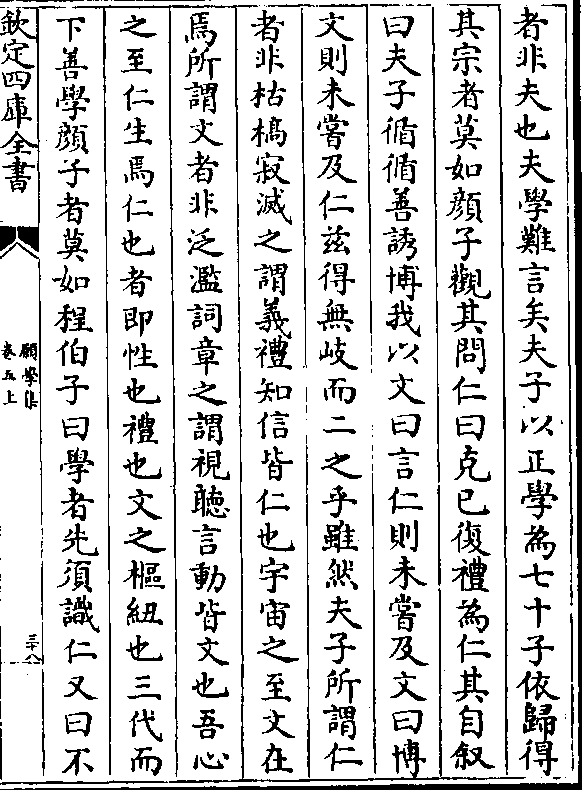 者非夫也夫學難言矣夫子以正學為七十子依歸得
其宗者莫如顔子觀其問仁曰克已復禮為仁其自叙
曰夫子循循善誘博我以文曰言仁則未嘗及文曰博
文則未嘗及仁兹得無岐而二之乎雖然夫子所謂仁
者非枯槁寂滅之謂義禮知信皆仁也宇宙之至文在
焉所謂文者非泛濫詞章之謂視聽言動皆文也吾心
之至仁生焉仁也者即性也禮也文之樞紐也三代而
下善學顔子者莫如程伯子曰學者先須識仁又曰不
欽定四庫全書
願學集
卷五上
三十八